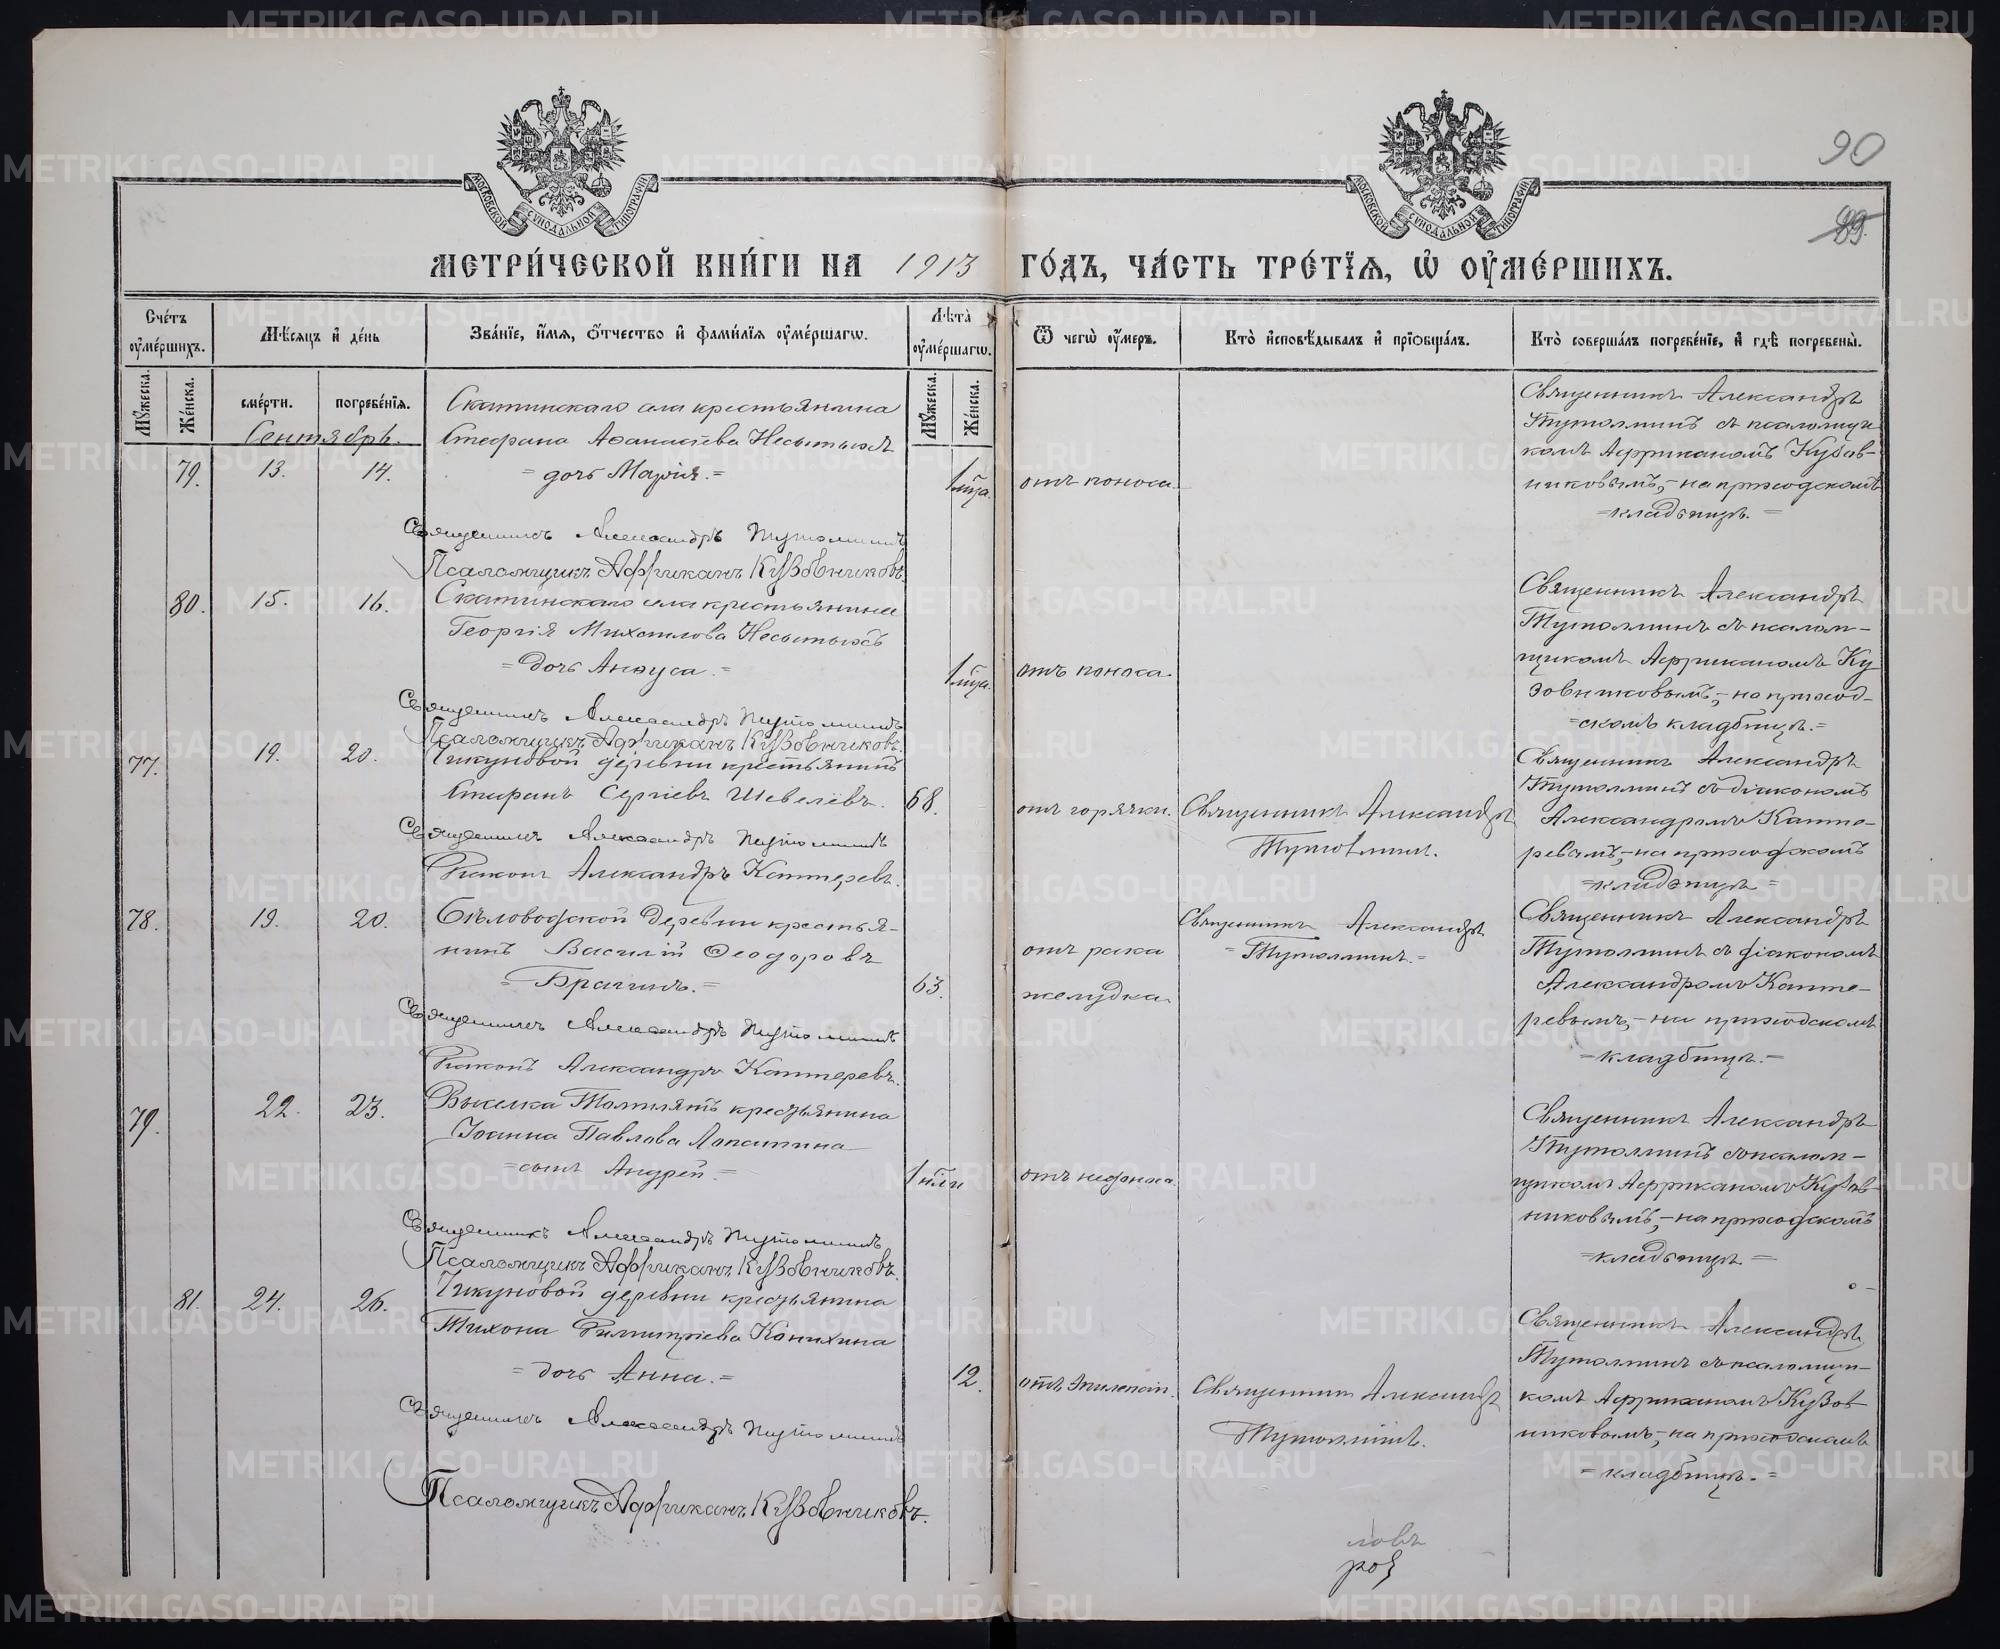 90
89.
МОСКОВСКОЙ СѴНОДАЛЬНОЙ ТИПОГРАФІИ
МОСКОВСКОЙ СѴНОДАЛЬНОЙ ТИПОГРАФІИ
МЕТРИ́ЧЕСКОЙ КНИ́ГИ НА 1913 ГО́ДЪ, ЧА́СТЬ ТРЕ́ТІѦ, Ѡ҆ ОУ҆МЕ́РШИХЪ.
Сче́тъ оу҆ме́ршихъ.
Мѣ́сяцъ и҆ де́нь
Зва́нїе, и҆́мя, ѻ҆́тчество и҆ фами́лїя оу҆ме́ршагѡ.
Лѣ́та оу҆ме́ршагѡ.
Ѿ чегѡ̀ оу҆́меръ.
Кто̀ и҆сповѣ́дывалъ и҆ прїѡбща́лъ.
Кто̀ соверша́лъ погребе́нїе, и҆ гдѣ̀ погребены̀.
Мꙋ́жеска.
Же́нска.
сме́рти.
погребе́нїя.
Мꙋ́жеска.
Же́нска.
Сентябрь.
79. 13. 14.
Скатинскаго села крестьянина
Стефана Аѳанасіева Несытыхъ
= дочь Марія. =
1 мца.
отъ поноса.
Священникъ Александръ
Тутолминъ съ псаломщи
комъ Африканомъ Кузов-
никовымъ, - на приходскомъ
= кладбищѣ. =
Священникъ Александръ Тутолминъ
Псаломщикъ Африканъ Кузовниковъ.
80. 15. 16.
Скатинскаго села крестьянина
Георгія Михаилова Несытыхъ
= дочь Анѳуса. =
1 мца.
отъ поноса.
Священникъ Александръ
Тутолминъ съ псалом-
щикомъ Африканомъ Ку
зовниковымъ, - на приход-
= скомъ кладбищѣ. =
Священникъ Александръ Тутолминъ
Псаломщикъ Африканъ Кузовниковъ.
77. 19. 20.
Чикуновой деревни крестьянинъ
Стефанъ Сергіевъ Шевелёвъ.
68.
отъ горячки.
Священникъ Александръ
Тутолминъ.
Священникъ Александръ
Тутолминъ съ діакономъ
Александромъ Катте-
ревымъ, - на приходскомъ
= кладбищѣ =
Священникъ Александръ Тутолминъ
Діаконъ Александръ Каттеревъ.
78. 19. 20.
Бѣловодской деревни крестья-
нинъ Василій Ѳеодоровъ
= Брагинъ. =
63.
отъ рака
желудка.
Священникъ Александръ
= Тутолминъ. =
Священникъ Александръ
Тутолминъ съ діакономъ
Александромъ Катте-
ревымъ, - на приходскомъ
= кладбищѣ. =
Священникъ Александръ Тутолминъ
Діаконъ Александръ Каттеревъ.
79. 22. 23.
Выселка крестьянина
Іоанна Павлова Лопатина
= сынъ Андрей. =
1 нѣди
Священникъ Александръ
Тутолминъ съ псалом-
щикомъ Африканомъ Кузов-
никовымъ, - на приходскомъ
= кладбищѣ =
Священникъ Александръ Тутолминъ
Псаломщикъ Африканъ Кузовниковъ.
81. 24. 26.
Чикуновой деревни крестьянина
Тихона Димитріева Конихина
= дочь Анна. =
12.
отъ эпилепсіи.
Священникъ Александръ
Тутолминъ.
Священникъ Александръ
Тутолминъ съ псаломщи-
комъ Африканомъ Кузов
никовымъ, - на приходскомъ
= кладбищѣ. =
Священникъ Александръ Тутолминъ
Псаломщикъ Африканъ Кузовниковъ.
METRIKI.GASO-URAL.RU